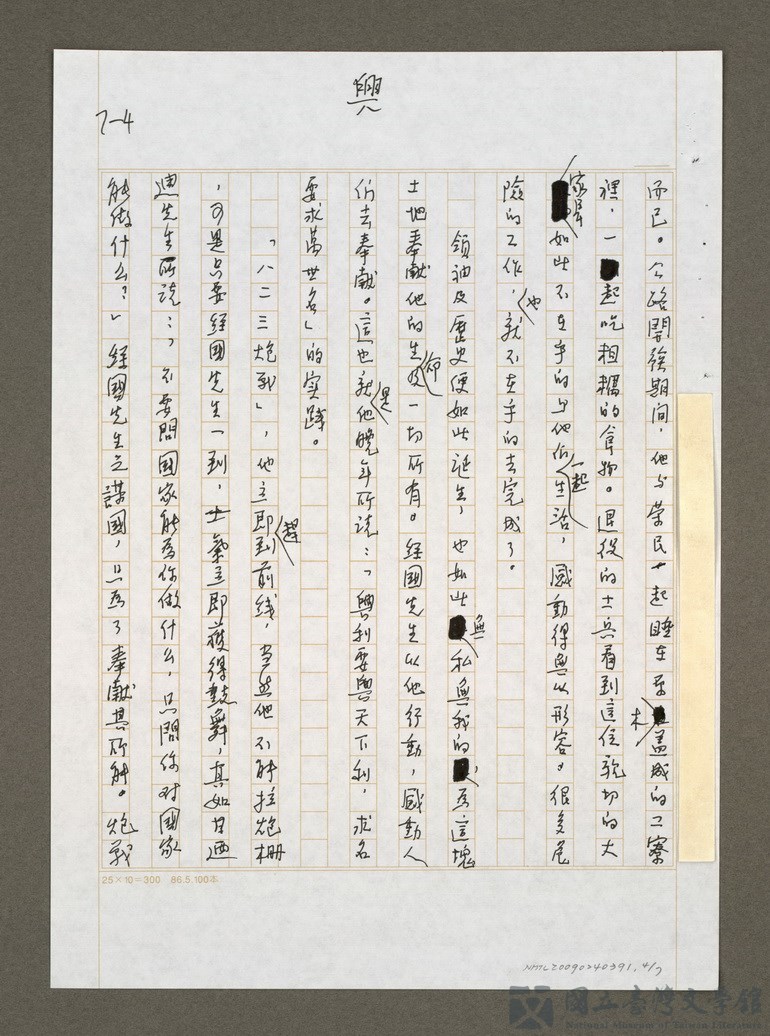 興
7-4
而已。公路開發期間，他与荣民一起睡在草木盖成的工寮
裡，一起吃粗糲的食物。退役的士兵看到這位親切的大
家長如此不在乎的与他们一起生活，感動得無以形容。很多危
險的工作，也就不在乎的去完成了。
領袖及歷史便如此誕生，也如此無私無我的，為這塊
土地奉獻他的生命及一切所有。經國先生以他行動，感動人
们去奉獻。這也就是他晚年所說：「興利要興天下利，求名
要求萬世名」的實踐。
「八二三炮战」，他立即趕到前线，当然他不能拉炮栅
，可是只要經國先生一到，士氣立即獲得鼓舞，真如甘迺
迪先生所說：「不要問國家能為你做什么，只問你对國家
能做什么？」經國先生之謀國，只為了奉獻其所能。炮战
25×10=300 86.5.100本
NMTL20090240391, 4/7
國立臺灣文學館
National Museum of Taiwan Literature